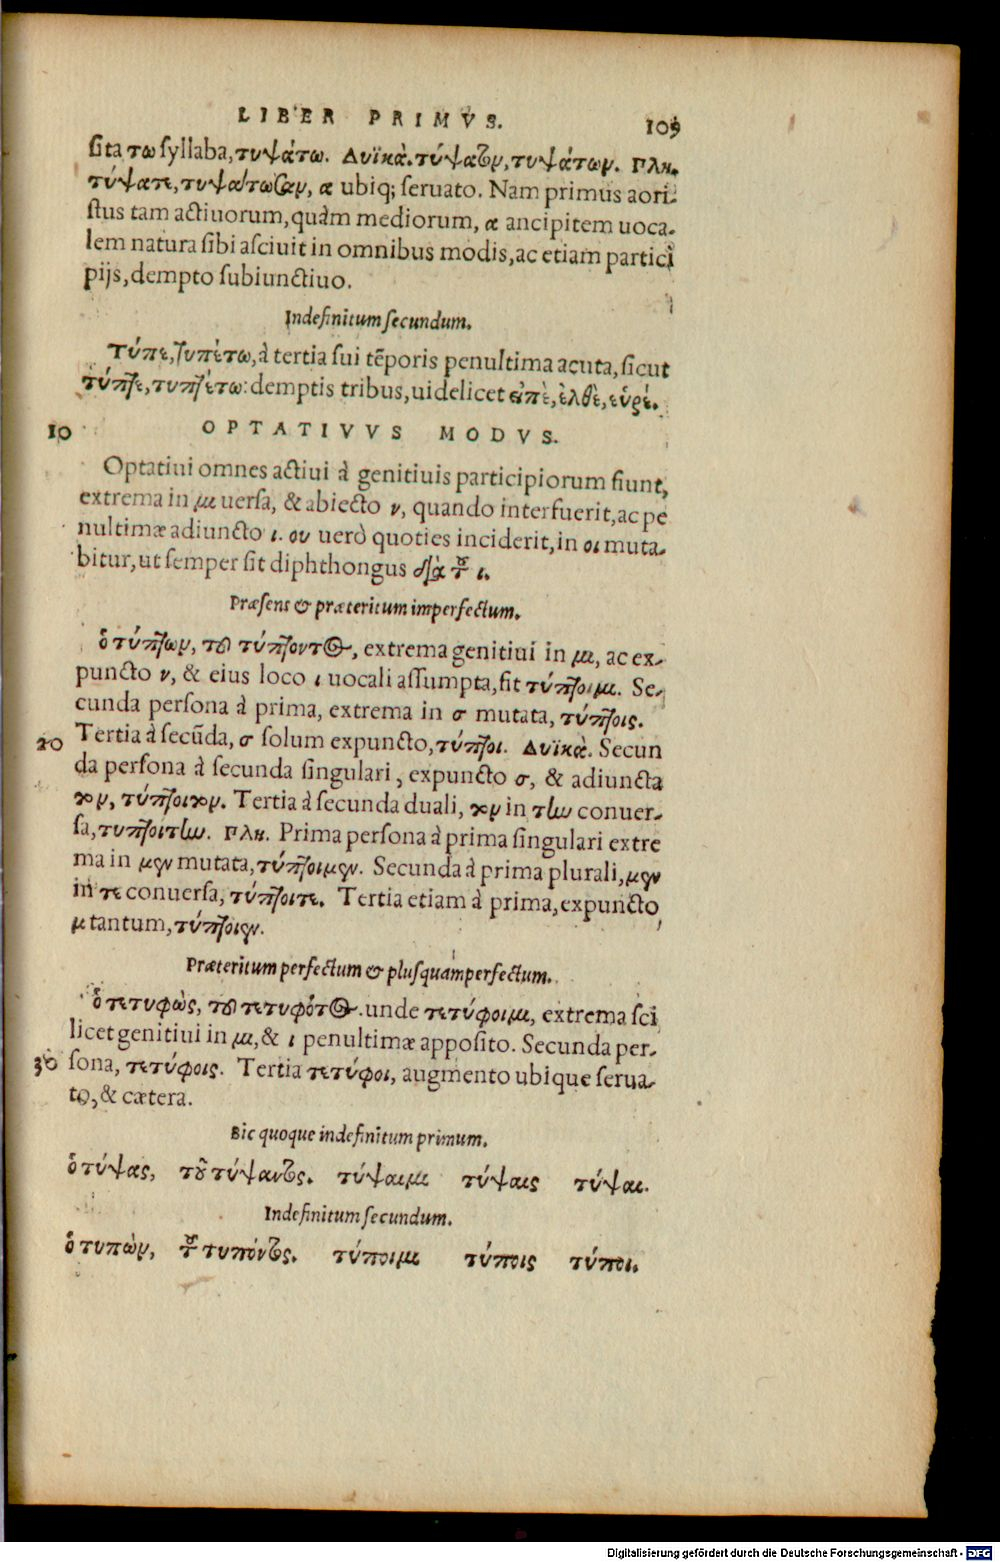 LIBER PRIMVS. 109
sita τω syllaba, τυψάτω. Δυϊκὰ. τύψατον, τυψάτων. Πλη.
τύψατε, τυψάτωσαν, α ubiq; seruato. Nam primus aori-
stus tam actiuorum, quàm mediorum, α ancipitem uoca-
lem natura sibi asciuit in omnibus modis, ac etiam partici
pijs, dempto subiunctiuo.
Indefinitum secundum.
Τύπε, τυπέτω, à tertia sui tẽporis penultima acuta, sicut
τύπτε, τυπτέτω: demptis tribus, uidelicet εἰπὲ, ἐλθὲ, εὑρέ.
10 OPTATIVVS MODVS.
Optatiui omnes actiui à genitiuis participiorum fiunt,
extrema in μι uersa, & abiecto ν, quando interfuerit, ac pe
nultimæ adiuncto ι. ου uerò quoties inciderit, in οι muta-
bitur, ut semper sit diphthongus διὰ τοῦ ι.
Præsens & præteritum imperfectum.
ὁ τύπτων, τοῦ τύπτοντος, extrema genitiui in μι, ac ex-
puncto ν, & eius loco ι uocali assumpta, fit τύπτοιμι. Se-
cunda persona à prima, extrema in σ mutata, τύπτοις.
20 Tertia à secũda, σ solum expuncto, τύπτοι. Δυϊκὰ. Secun
da persona à secunda singulari, expuncto σ, & adiuncta
τον, τύπτοιτον. Tertia à secunda duali, τον in την conuer-
sa, τυπτοίτην. Πλη. Prima persona à prima singulari extre
ma in μεν mutata, τύπτοιμεν. Secunda à prima plurali, μεν
in τε conuersa, τύπτοιτε. Tertia etiam à prima, expuncto
μ tantum, τύπτοιεν.
Præteritum perfectum & plusquamperfectum.
ὁ τετυφὼς, τοῦ τετυφότος. unde τετύφοιμι, extrema sci
licet genitiui in μι, & ι penultimæ apposito. Secunda per-
30 sona, τετύφοις. Tertia τετύφοι, augmento ubique serua-
to, & cætera.
Sic quoque indefinitum primum.
ὁ τύψας, τοῦ τύψαντος. τύψαιμι τύψαις τύψαι.
Indefinitum secundum.
ὁ τυπὼν, τοῦ τυπόντος. τύποιμι τύποις τύποι.
Digitalisierung gefördert durch die Deutsche Forschungsgemeinschaft - DFG